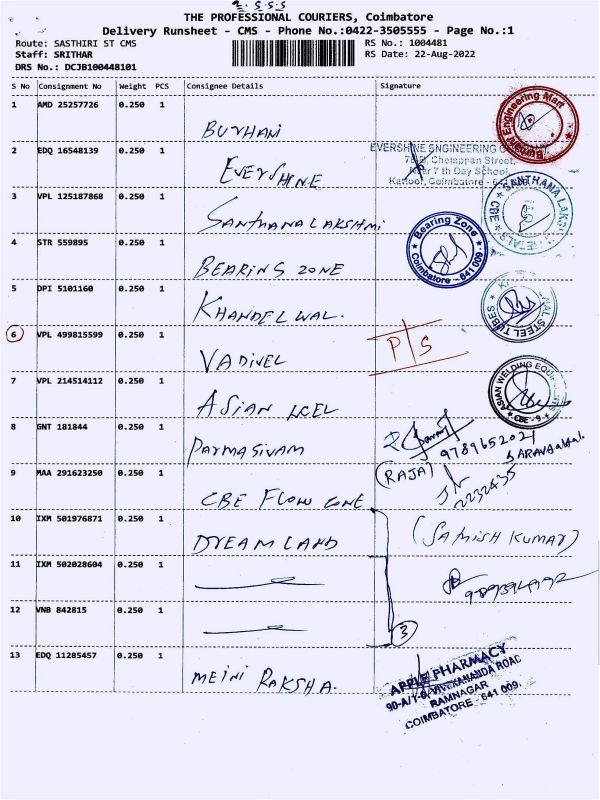 2.S.S.S
THE PROFESSIONAL COURIERS, Coimbatore
Delivery Runsheet - CMS - Phone No.:0422-3505555 - Page No.:1
Route: SASTHIRI ST CMS
RS No.: 1004481
Staff: SRITHAR
RS Date: 22-Aug-2022
DRS No.: DCJB100448101
S No Consignment No Weight PCS Consignee Details Signature
1 AMD 25257726 0.250 1 BURHANI
Burhani Engineering Mart
2 EDQ 16548139 0.250 1 EVERSHINE
EVERSHINE ENGINEERING
Chetappan Street,
Near 7 th Day School,
Kattoor, Coimbatore - 641
3 VPL 125187868 0.250 1 SANTHANA LAKSHMI
SANTHANA LAKSHMI METALS CBE
4 STR 559895 0.250 1 BEARING ZONE
Bearing Zone
Coimbatore - 641 009.
5 DPI 5101160 0.250 1 KHANDELWAL.
STEEL TUBES
6 VPL 499815599 0.250 1 VADIVEL
P/S
7 VPL 214514112 0.250 1 ASIAN
ASIAN WELDING EQUIPMENTS
CBE - 9
8 GNT 181844 0.250 1 PARMASIVAM
9789652021
(RAJA)
9 MAA 291623250 0.250 1 CBE FLOW
2232435
10 IXM 501976871 0.250 1 DREAMLAND
(SATHISH KUMAR)
11 IXM 502028604 0.250 1
12 VNB 842815 0.250 1
3
13 EDQ 11285457 0.250 1 MEINI RAKSHA.
APPLE PHARMACY
90-A/1-B, VIVEKANANDA ROAD
RAMNAGAR
COIMBATORE - 641 009.